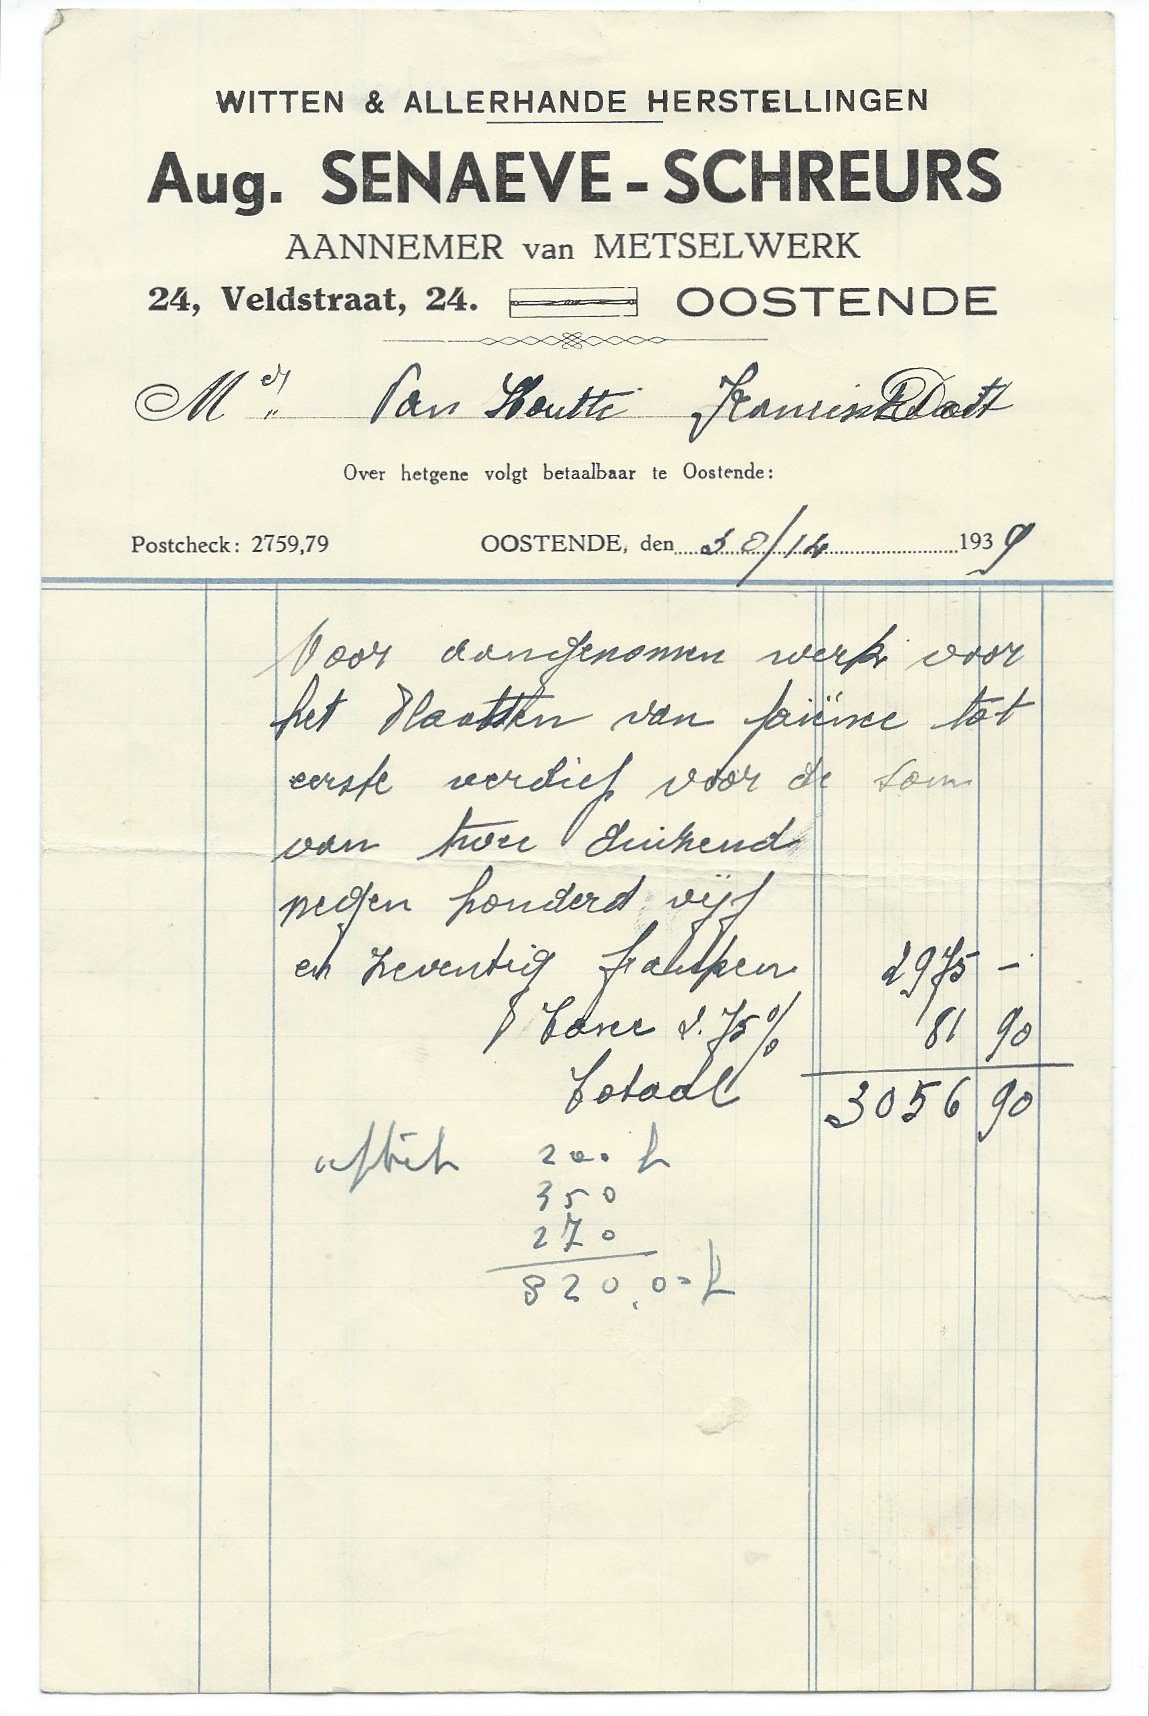 WITTEN & ALLERHANDE HERSTELLINGEN
Aug. SENAEVE - SCHREURS
AANNEMER van METSELWERK
24, Veldstraat, 24. OOSTENDE
M Van Houtte
Over hetgene volgt betaalbaar te Oostende:
Postcheck: 2759,79 OOSTENDE, den 30/12 1939
Voor aangenomen werk voor
het Plaatsen van faiënce tot
eerste verdief voor de som
van twee duizend
negen honderd vijf
en zeventig franken 2975 -
Taxe 2.75% 81 90
Totaal 3056 90
200 f
350
270
820,00 f